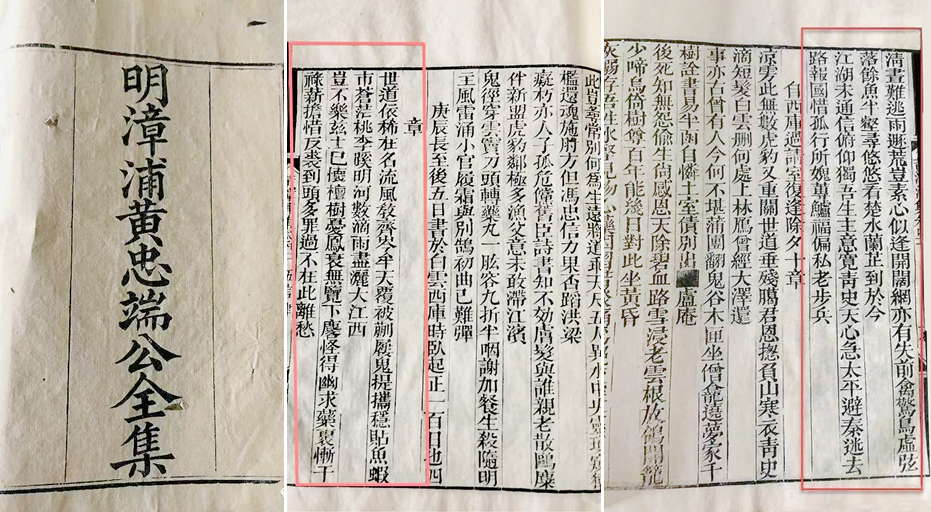 明漳浦黃忠端公全集
此豈尋常別何為生遠將道乖天尺五人異水中央
檻還魂施肘方但馮忠信力果否蹈洪梁
癡朽亦人子孤危僅舊臣詩書知不效膚髮與誰親老散鷗麋
件新盟虎豹鄰極多漁父意未敢滯江濱
鬼徑穿雲竇刀頭轉藥丸一肱容九折半咽謝加餐生殺隨明
主風雷涌小官履霜與別鵠初曲已難彈
庚辰長至後五日書於白雲西庫時臥起正一百日也四
章
世道依稀在名流風敎齊災牟天覆被蒯屨鬼提攜穩貼魚蝦
市蒼茫桃李蹊明河數滴雨盡灑大江西
豈不樂茲土已懷檀樹憂鳳衰無覽下麐怪得幽求藥裹慚干
祿薪擔惜反裘到頭多罪過不在此離愁
清晝難逃雨荒豈素心似逢開闊網亦有失前禽驚鳥虛弦
落餘魚半壑尋悠悠看楚水蘭芷到於今
江湖未通信俯仰獨吾生主意寬靑史天心急太平避秦逃去
路報國惜孤行所媿蓴鱸福偏私老步兵
自西庫過請室復逢除夕十章
此無數虎豹又重關世道垂殘臈君恩揔負山寒衣靑史
滴短髮白雲刪何處上林鴈曾經大澤還
事亦古曾有人今何不堪蒲團翻鬼谷木匣坐僧龕遶夢家千
樹詮書易半函自憐土室債別出盧庵
後死知無怨偷生尚感恩天除碧血路雪浸老雲根放鴿開籠
少啼烏倚樹尊百年能幾日對此坐黃昏